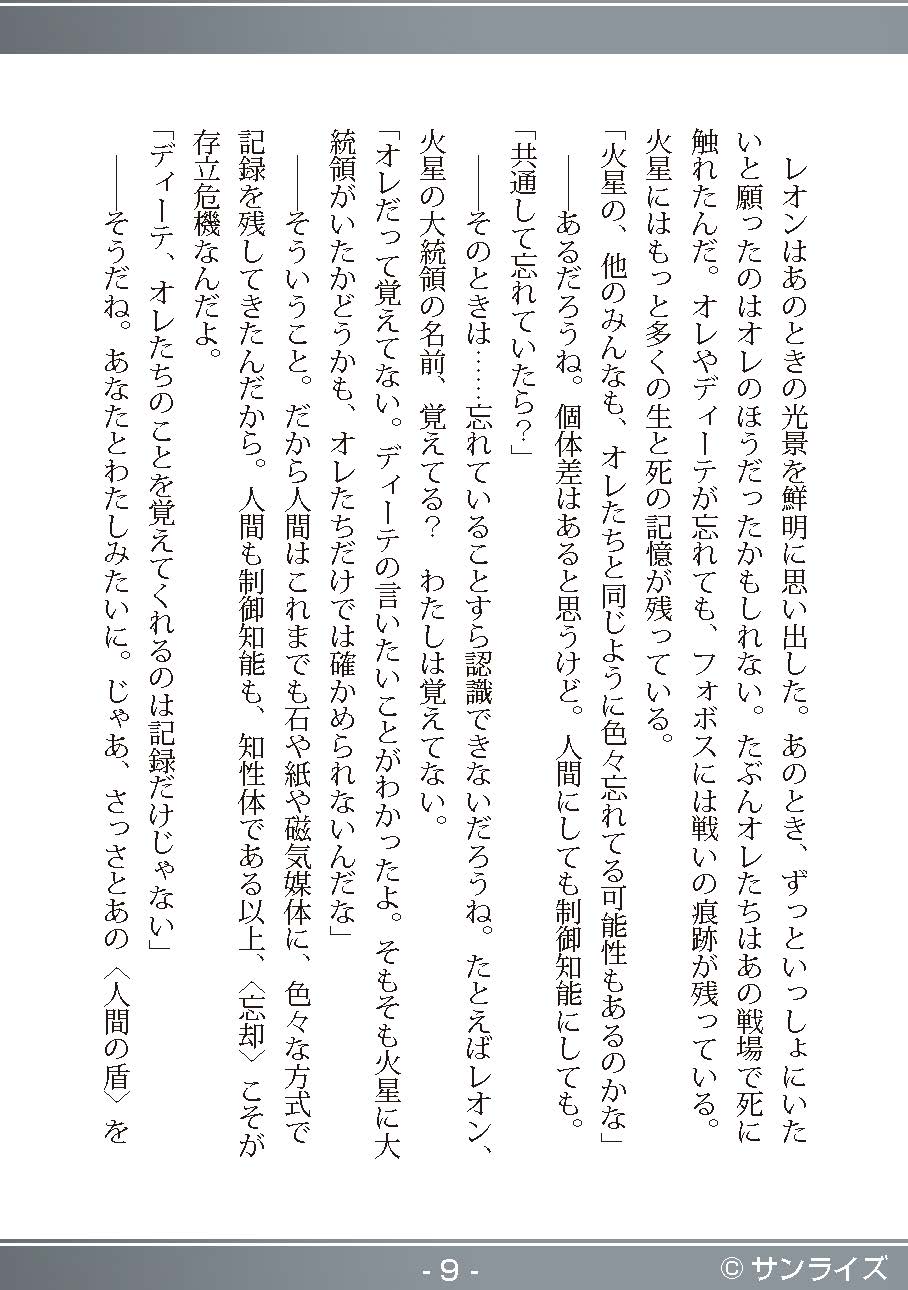 レオンはあのときの光景を鮮明に思い出した。あのとき、ずっといっしょにいた
いと願ったのはオレのほうだったかもしれない。たぶんオレたちはあの戦場で死に
触れたんだ。オレやディーテが忘れても、フォボスには戦いの痕跡が残っている。
火星にはもっと多くの生と死の記憶が残っている。
「火星の、他のみんなも、オレたちと同じように色々忘れてる可能性もあるのかな」
　――あるだろうね。個体差はあると思うけど。人間にしても制御知能にしても。
「共通して忘れていたら？」
　――そのときは……忘れていることすら認識できないだろうね。たとえばレオン、
火星の大統領の名前、覚えてる？　わたしは覚えてない。
「オレだって覚えてない。ディーテの言いたいことがわかったよ。そもそも火星に大
統領がいたかどうかも、オレたちだけでは確かめられないんだな」
　――そういうこと。だから人間はこれまでも石や紙や磁気媒体に、色々な方式で
記録を残してきたんだから。人間も制御知能も、知性体である以上、〈忘却〉こそが
存立危機なんだよ。
「ディーテ、オレたちのことを覚えてくれるのは記録だけじゃない」
　――そうだね。あなたとわたしみたいに。じゃあ、さっさとあの〈人間の盾〉を
- 9 -
© サンライズ